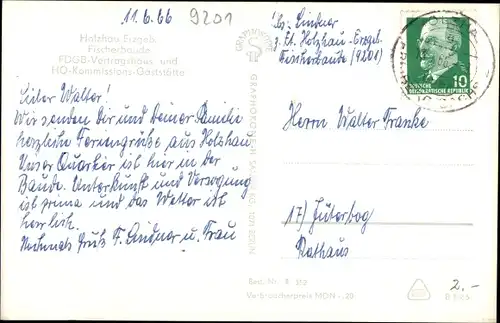 11.6.66
9201
Holzhau Erzgeb.
Fischerbaude
FDGB-Vertragshaus und
HO-Kommissions-Gaststätte
Lindner
z. Zt. Holzhau-Erzgeb.
Fischerbaude (9201)
10
DEUTSCHE
DEMOKRATISCHE REPUBLIK
Lieber Walter!
Wir senden Dir und Deiner Familie
herzliche Feriengrüße aus Holzhau.
Unser Quartier ist hier in der
Baude. Unterkunft und Versorgung
ist prima und das Wetter ist
herrlich.
Nochmals Gruß F. Lindner u. Frau
Herrn Walter Franke
17) Jüterbog
Rathaus
Best.-Nr. 8 359
Verbraucherpreis MDN -,20
2.-